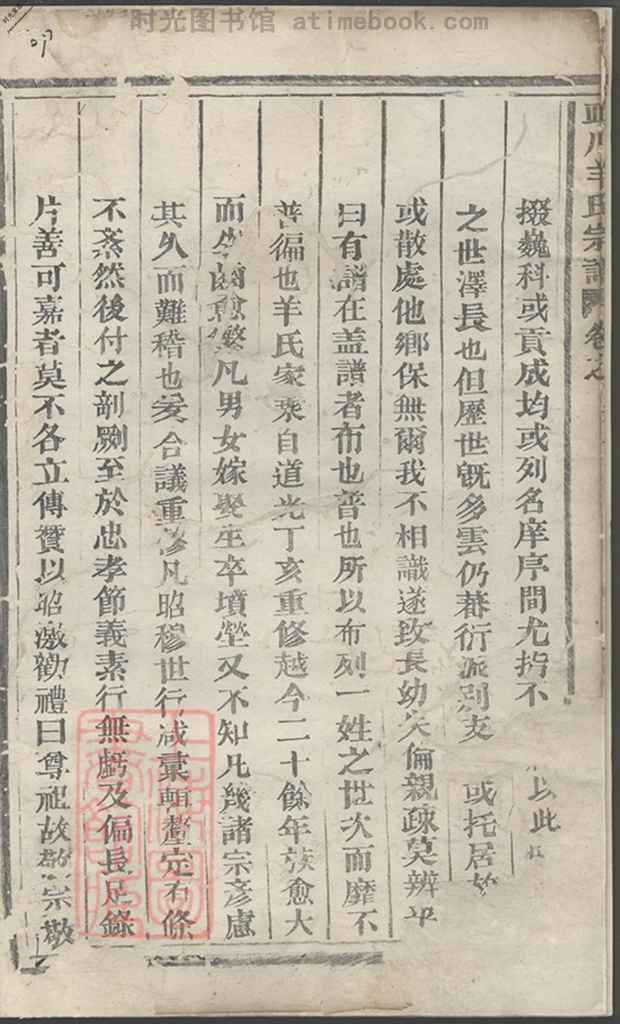 时光图书馆 atimebook.com
川羊氏宗譜 卷之
掇巍科或貢成均或列名庠序間尤指不 以此
之世澤長也但歷世旣多雲仍蕃衍派别支 或托居於
或散處他鄉保無爾我不相識遂致長幼失倫親疎莫辨乎
曰有譜在盖譜者布也普也所以布列一姓之世次而靡不
普徧也羊氏家乘自道光丁亥重修越今二十餘年族愈大
而生齒愈繁凡男女嫁娶生卒墳塋又不知凡幾諸宗彥慮
其久而難稽也爰合議重修凡昭穆世行咸彙輯釐定有條
不紊然後付之剞劂至於忠孝節義素行無虧及偏長足錄
片善可嘉者莫不各立傳贊以昭激勸禮曰尊祖故敬宗敬